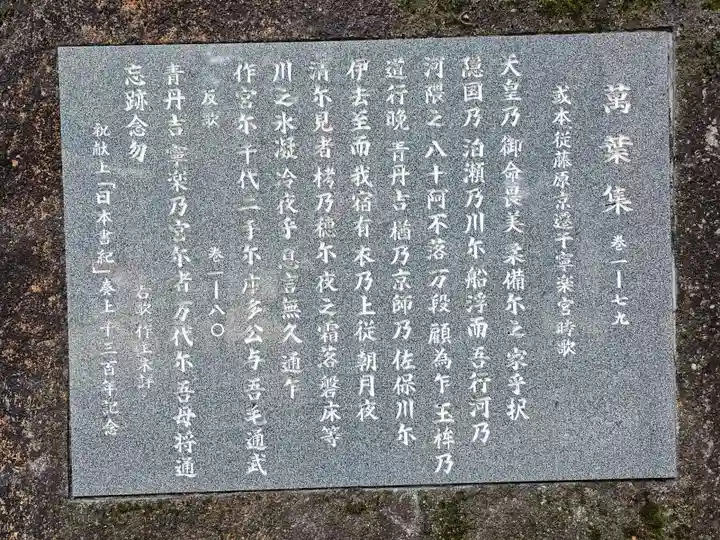 萬葉集 巻一ー七九
或本従藤原京遷于寧楽宮時歌
天皇乃 御命畏美 柔備尓之 家乎択
隠国乃 泊瀬乃川尓 船浮而 吾行河乃
河隈之 八十阿不落 万段 顧為乍 玉桙乃
道行晩 青丹吉 楢乃京師乃 佐保川尓
伊去至而 我宿有 衣乃上従 朝月夜
清尓見者 栲乃穂尓 夜之霜落 磐床等
川之氷凝 冷夜乎 息言無久 通乍
作宮尓 千代二手尓 座多公与 吾毛通武
反歌 巻一ー八〇
青丹吉 寧楽乃宮尓者 万代尓 吾母将通
忘跡念勿
右歌 作主未詳
祝献上「日本書紀」奏上千三百年記念